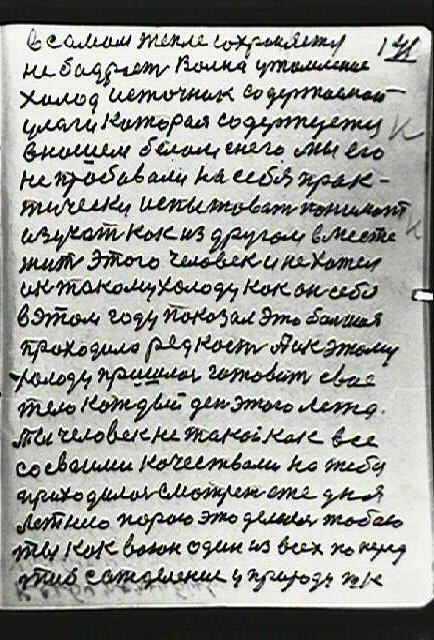 в самом тепле сохраняется 141
не бодрост Волна утомление
холод источник содержаной
влаги Которая содержется
в нашем белом снего мы его
не пробовали на себя прак-
тически испытоват понимат
изучат как из другом вместе
жит этого человек и не хател
ик такому холоду как он себа
в этом году показал это болшая
проходила редкост А к этому
холоду пришлос готовит свае
тело каждый ден этого лежа.
Ты человек не такой как все
со своими качествами на тебу
приходилос смотрет еже дная
летнею порою это делаля тобою
ты как воин один из всех
природу